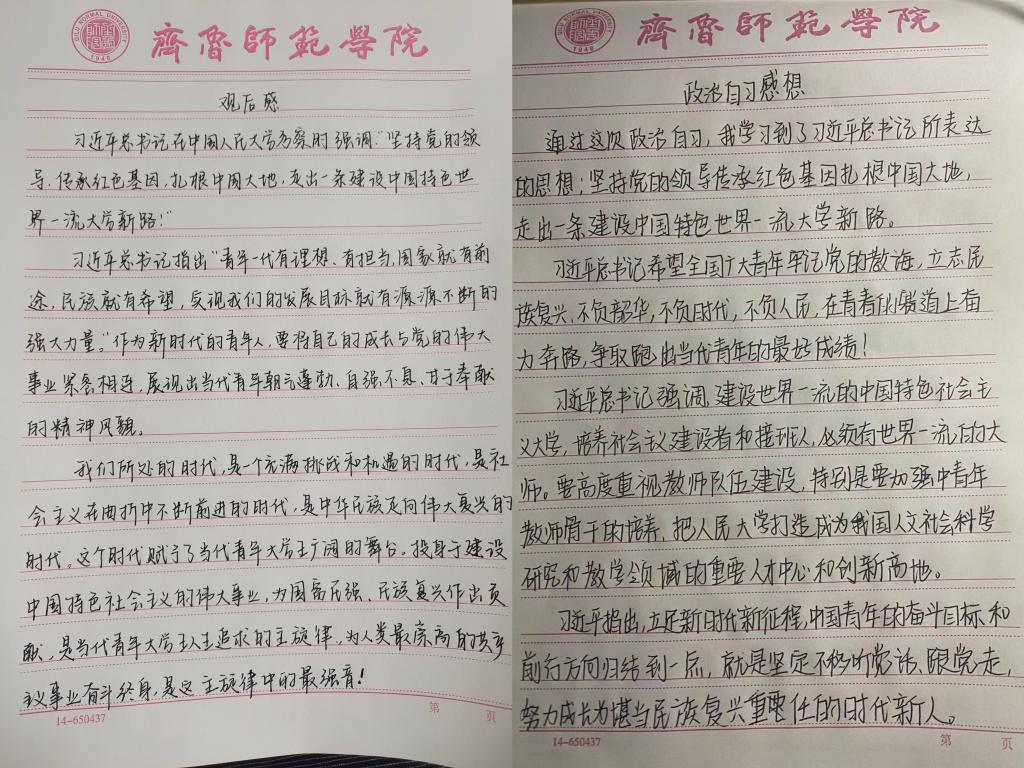 QILU NORMAL UNIVERSITY
1948
齊魯師範學院
观后感
习近平总书记在中国人民大学考察时强调:"坚持党的领
导、传承红色基因,扎根中国大地,走出一条建设中国特色世
界一流大学新路!"
习近平总书记指出"青年一代有理想、有担当,国家就有前
途,民族就有希望,实现我们的发展目标就有源源不断的
强大力量。"作为新时代的青年人,要将自己的成长与党的伟大
事业紧密相连,展现出当代青年朝气蓬勃、自强不息、甘于奉献
的精神风貌。
我们所处的时代,是一个充满挑战和机遇的时代,是社
会主义在曲折中不断前进的时代,是中华民族走向伟大复兴的
时代。这个时代赋予了当代青年大学生广阔的舞台。投身于建设
中国特色社会主义的伟大事业,为国富民强、民族复兴作出贡
献,是当代青年大学生人生追求的主旋律,为人类最崇高的共产
主义事业奋斗终身,是这主旋律中的最强音!
14-650437
第 页
QILU NORMAL UNIVERSITY
1948
齊魯師範學院
政治自习感想
通过这次政治自习,我学习到了习近平总书记所表达
的思想;坚持党的领导传承红色基因扎根中国大地,
走出一条建设中国特色世界一流大学新路。
习近平总书记希望全国广大青年牢记党的教诲,立志民
族复兴,不负韶华,不负时代,不负人民,在青春的赛道上奋
力奔跑,争取跑出当代青年的最好成绩!
习近平总书记强调,建设世界一流的中国特色社会主
义大学,培养社会主义建设者和接班人,必须有世界一流的大
师。要高度重视教师队伍建设,特别是要加强中青年
教师骨干的培养,把人民大学打造成为我国人文社会科学
研究和教学领域的重要人才中心和创新高地。
习近平指出,立足新时代新征程,中国青年的奋斗目标和
前行方向归结到一点,就是坚定不移听党话、跟党走,
努力成长为堪当民族复兴重要任的时代新人。
14-650437
第 页